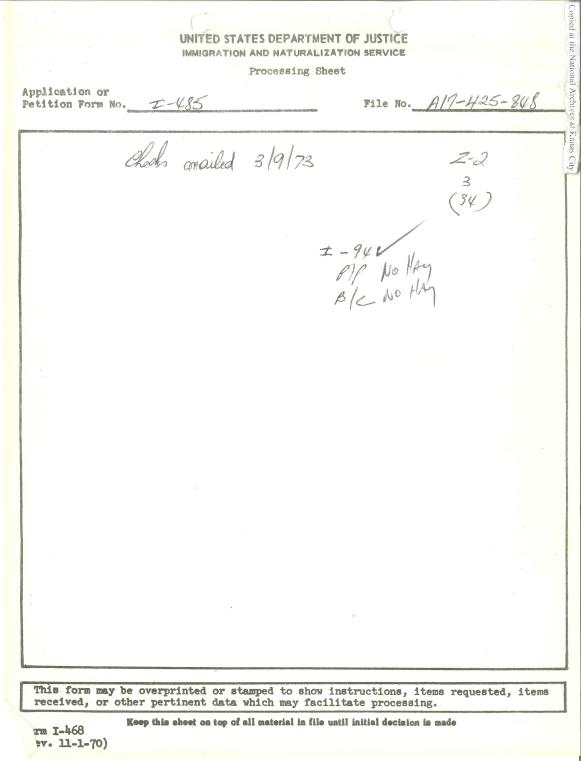 UNITED STATES DEPARTMENT OF JUSTICE
IMMIGRATION AND NATURALIZATION SERVICE
Processing Sheet
Application or
Petition Form No. I-485
File No. A17-425-848
Copied at the National Archives at Kansas City
Checks mailed 3/9/73
Z-2
3
(34)
I-94 ✓
P/P No HAy
B/C No HAy
This form may be overprinted or stamped to show instructions, items requested, items
received, or other pertinent data which may facilitate processing.
Keep this sheet on top of all material in file until initial decision is made
rm I-468
ev. 11-1-70)